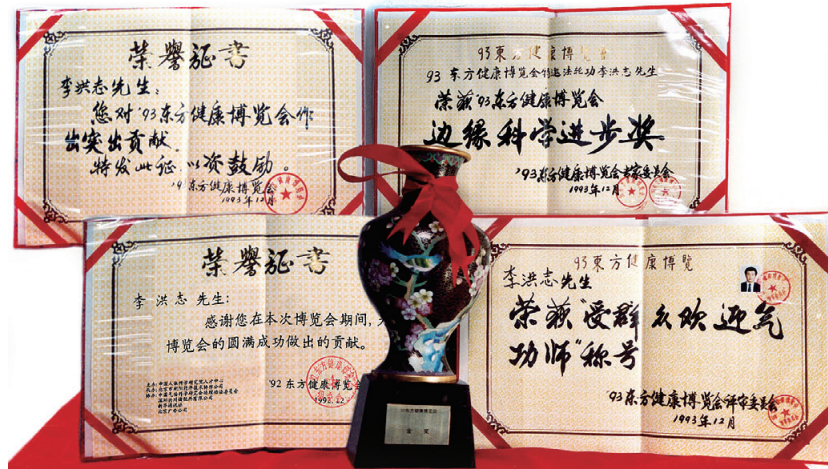 荣誉证书
李洪志先生：
您对'93东方健康博览会作
出突出贡献，
特发此证，以资鼓励。
'93东方健康博览会
1993年12月
93東方健康博览會
93东方健康博览会特邀法轮功李洪志先生
荣获'93东方健康博览会
边缘科学进步奖
'93东方健康博览会专家委员会
1993年12月
荣誉证书
李洪志先生：
感谢您在本次博览会期间，
博览会的圆满成功做出的贡献。
'92东方健康博览会
93東方健康博览
李洪志先生
荣获“受群众欢迎气
功师”称号
93东方健康博览会评审委员会
1993年12月
金奖